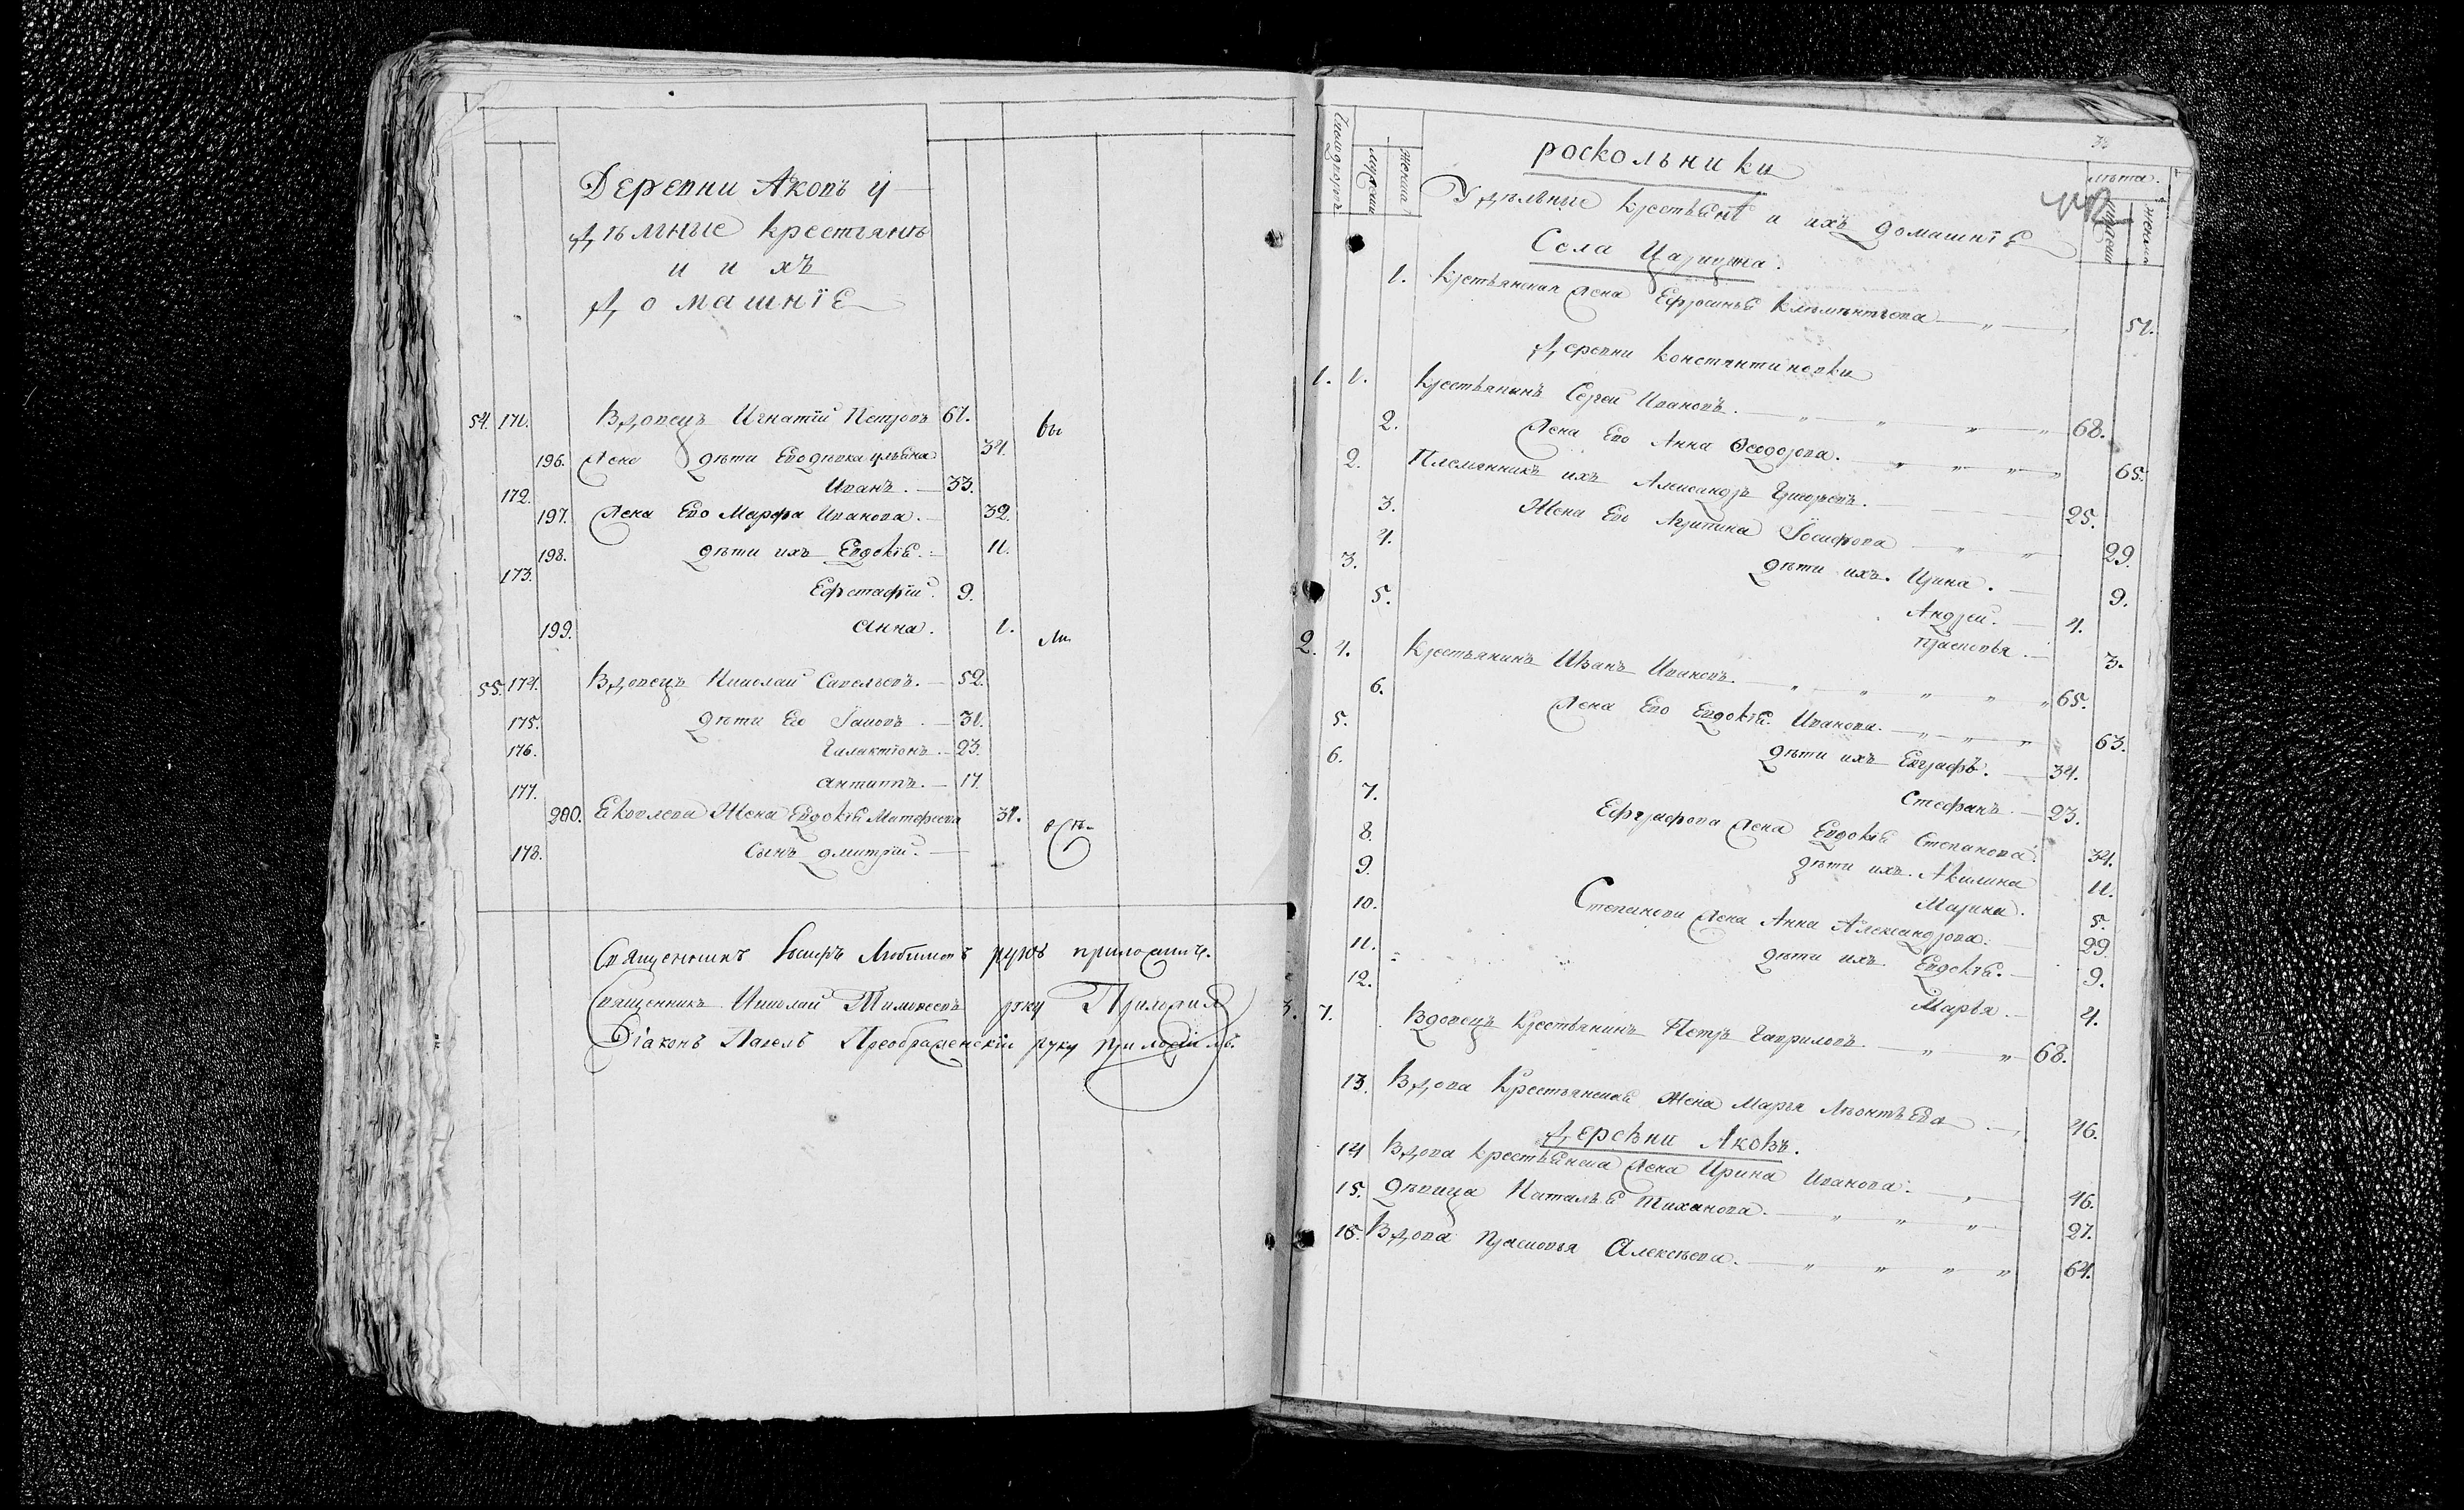 Деревни Аковъ у
дѣльные крестьянѣ
и ихъ
домашнїе
54. 171. Вдовецъ Игнатїй Петровъ 61. вы
196. дѣти Его дѣвка ульяна 34.
172. Иванъ. 33.
197. Жена Ево Марфа Иванова. 32.
198. дѣти ихъ Евдокїя. 11.
173. Ефстафїй. 9.
199. анна. 1.
55. 174. Вдовецъ Николай Савельевъ. 52.
175. дѣти Ево Iаковъ. 31.
176. Галактїонъ. 23.
177. антипъ. 17.
200. Яковлева Жена Евдокїя Матфеева 31.
178. Сынъ дмитрїй.
Священникъ Иосифъ Любимовъ руку приложилъ.
Священникъ Николай Тимофеевъ руку Приложилъ
Дїаконъ Павелъ Преображенскїй руку приложилъ.
38
роскольники
лѣта.
мужеска
женска
Удѣльные крестьянѣ и ихъ домашнїе
Села Царицына.
1. Крестьянская жена Ефросинья Климентьева 51.
деревни Константиновки
1. 1. Крестьянинъ Сергей Ивановъ. 68.
2. Жена Ево Анна Феодорова. 65.
2. Племянникъ ихъ Александръ Григорьевъ. 25.
3. Жена Ево Агрипина Iосифова 29.
4. дѣти ихъ. Ирина. 9.
3. Андрей. 4.
5. Прасковья. 3.
2. 4. Крестьянинъ Иванъ Ивановъ. 65.
6. Жена Ево Евдокїя Иванова. 63.
5. дѣти ихъ Евграфъ. 34.
6. Стефанъ. 23.
7. Ефграфова жена Евдокїя Степанова. 34.
8. дѣти ихъ. Акилина 11.
9. Марина. 5.
10. Степанова жена Анна Александрова. 29.
11. дѣти ихъ Евдокїя. 9.
12. Марья. 4.
3. 7. Вдовецъ Крестьянинъ Петръ Гавриловъ. 68.
13. Вдова Крестьянская Жена Марья Лѣонтьева 46.
деревни Аковъ.
14 Вдова крестьянска жена Ирина Иванова. 46.
15. дѣвица Наталья Тиханова. 27.
16. Вдова Прасковья Алексѣева. 64.